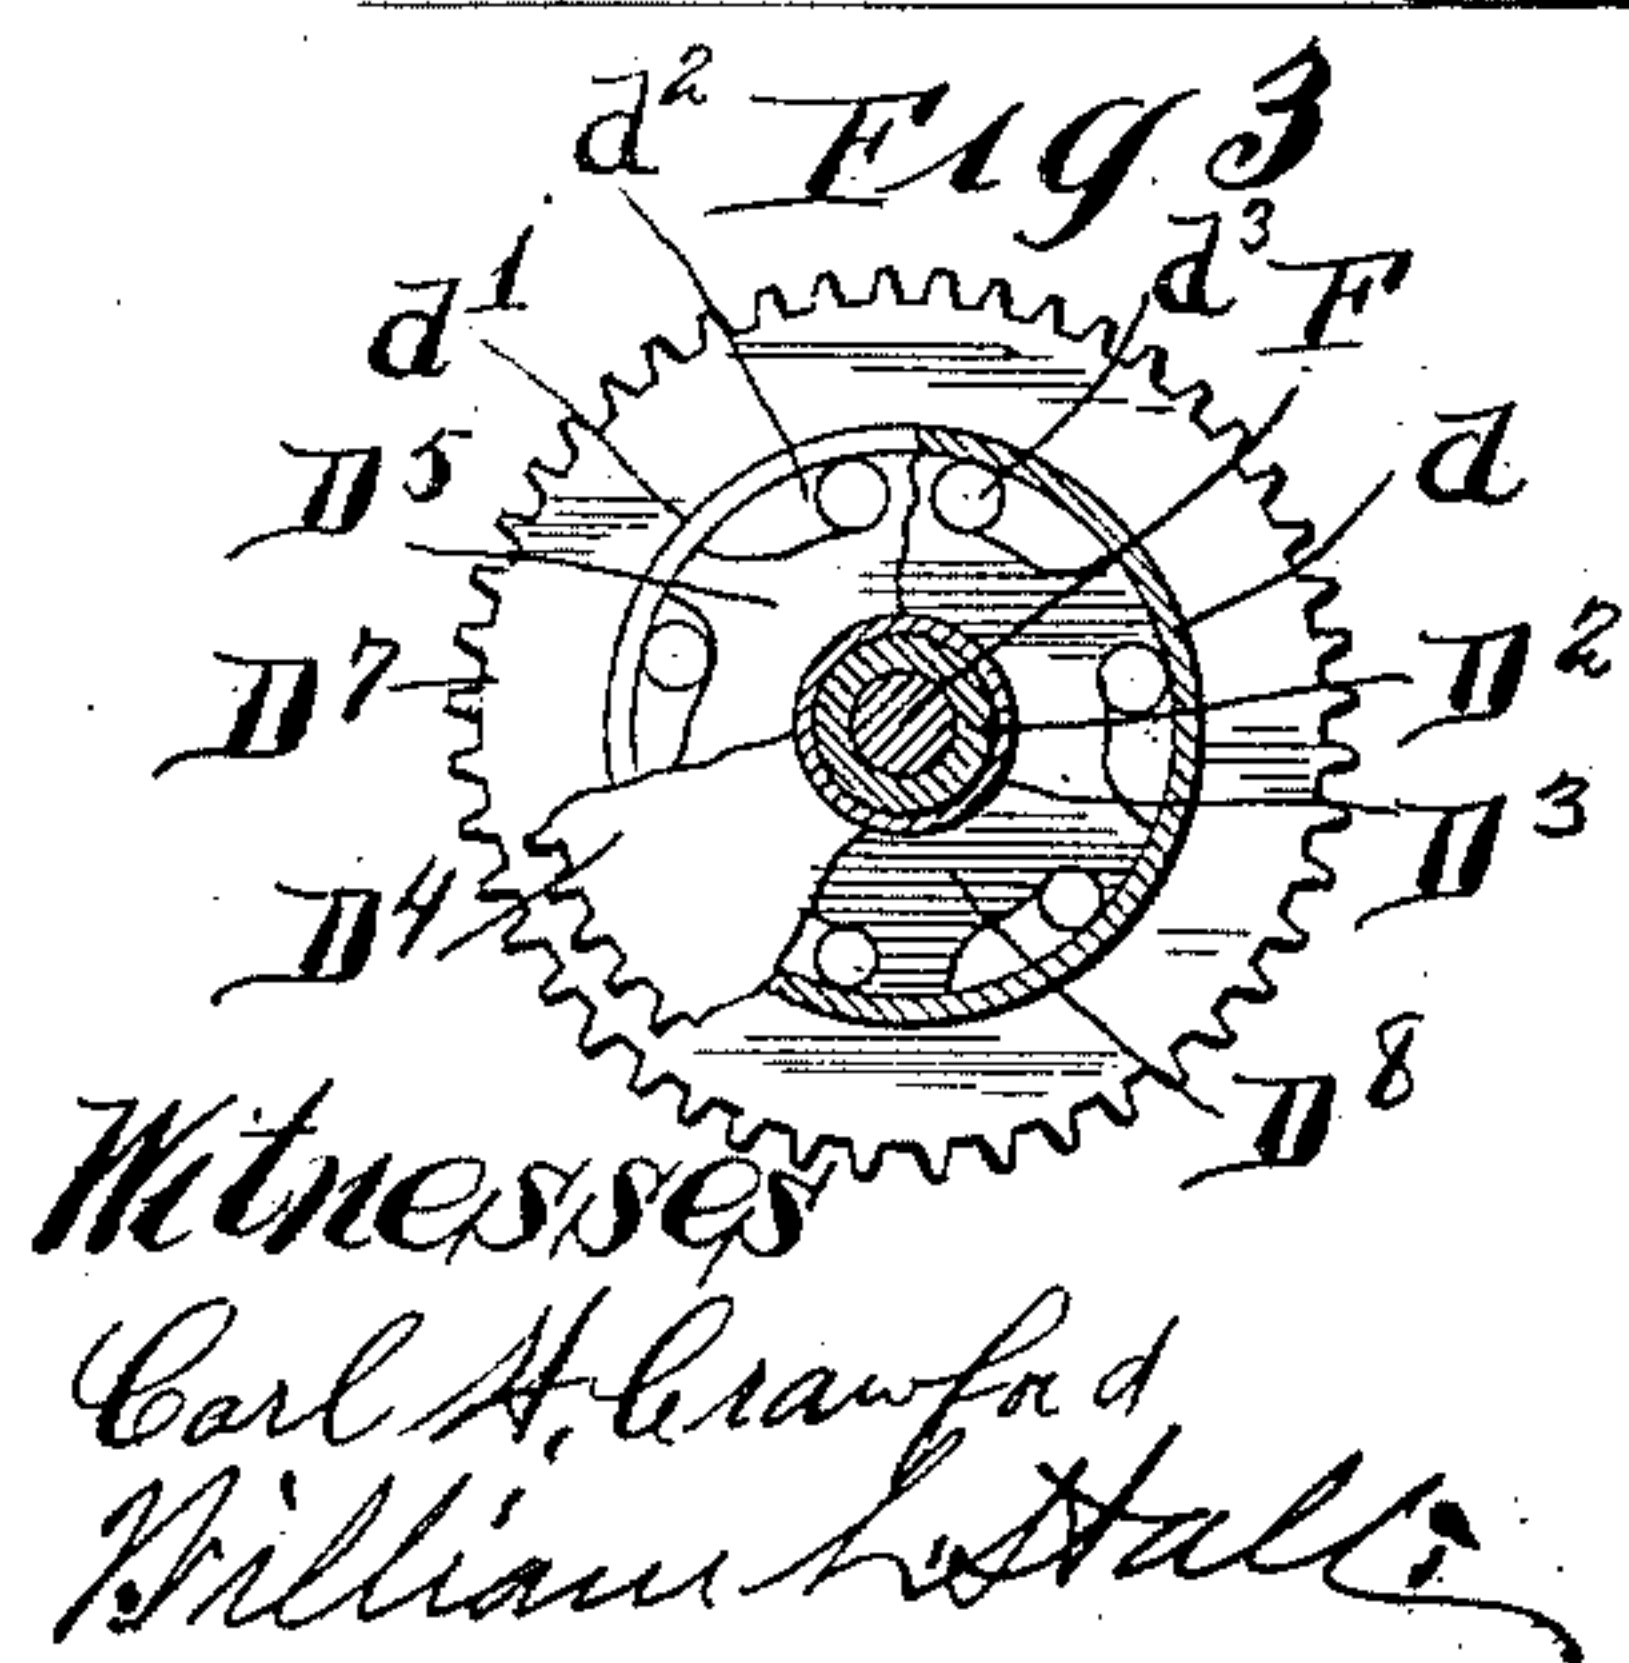 d² Fig 3
d³ F
d¹
d
D⁵
D²
D⁷
D³
D⁴
D⁸
Witnesses
Carl H. Crawford
William L. Hall.